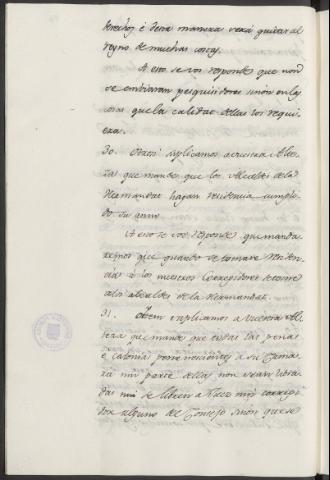 derechos é desta manera será quitar al
reyno de muchas costas.
A esto se vos responde que non
se embiaran pesquisidores sinon en las
cosas que la calidad dellas los requi
era.
30. Otrosí suplicamos a vuestra Alte
za que mande que los Alcaldes de la
Hermandat hagan residencia cumpli
do su anno.
A esto se vos responde que manda
remos que quando se tomare residen
cia a los nuestros Corregidores se tome
a los alcaldes de la Hermandat.
31. Otrosí suplicamos a Vuestra Al
teza que mande que todas las penas
é calonias pertenecientes a su Cama
ra nin parte dellas non sean libra
das nin se libren a Juez nin corregi
dor alguno del Consejo sinon que se